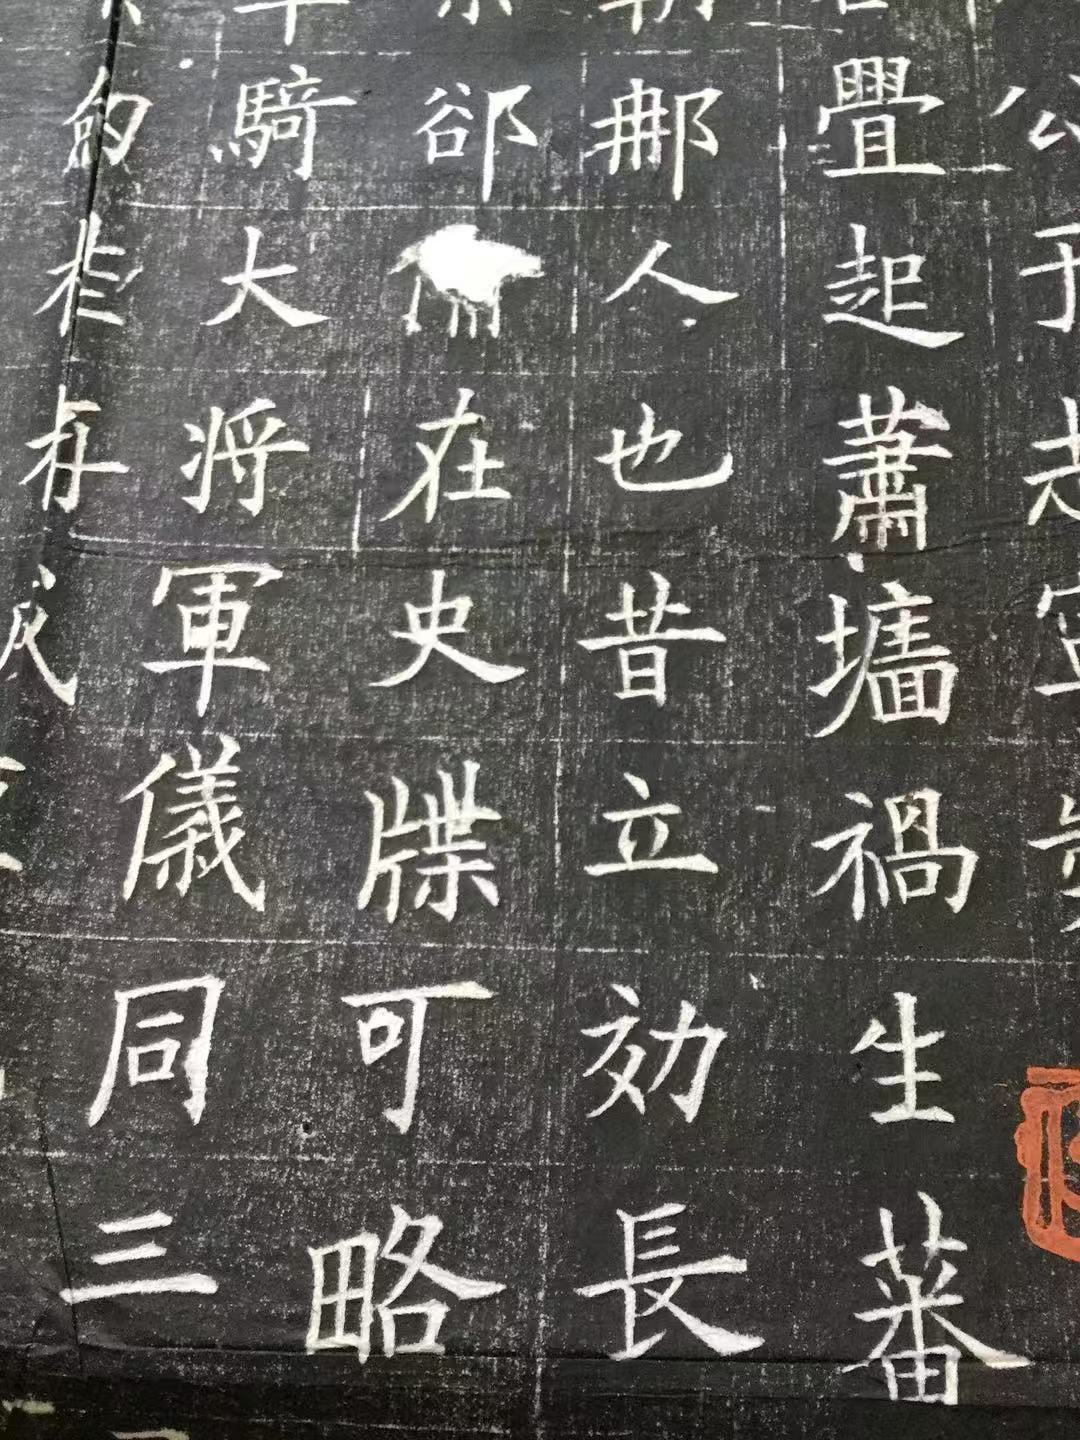 公于
疊起蕭墻禍生蕃
郍人也昔立効長
郤在史牒可略
騎大將軍儀同三